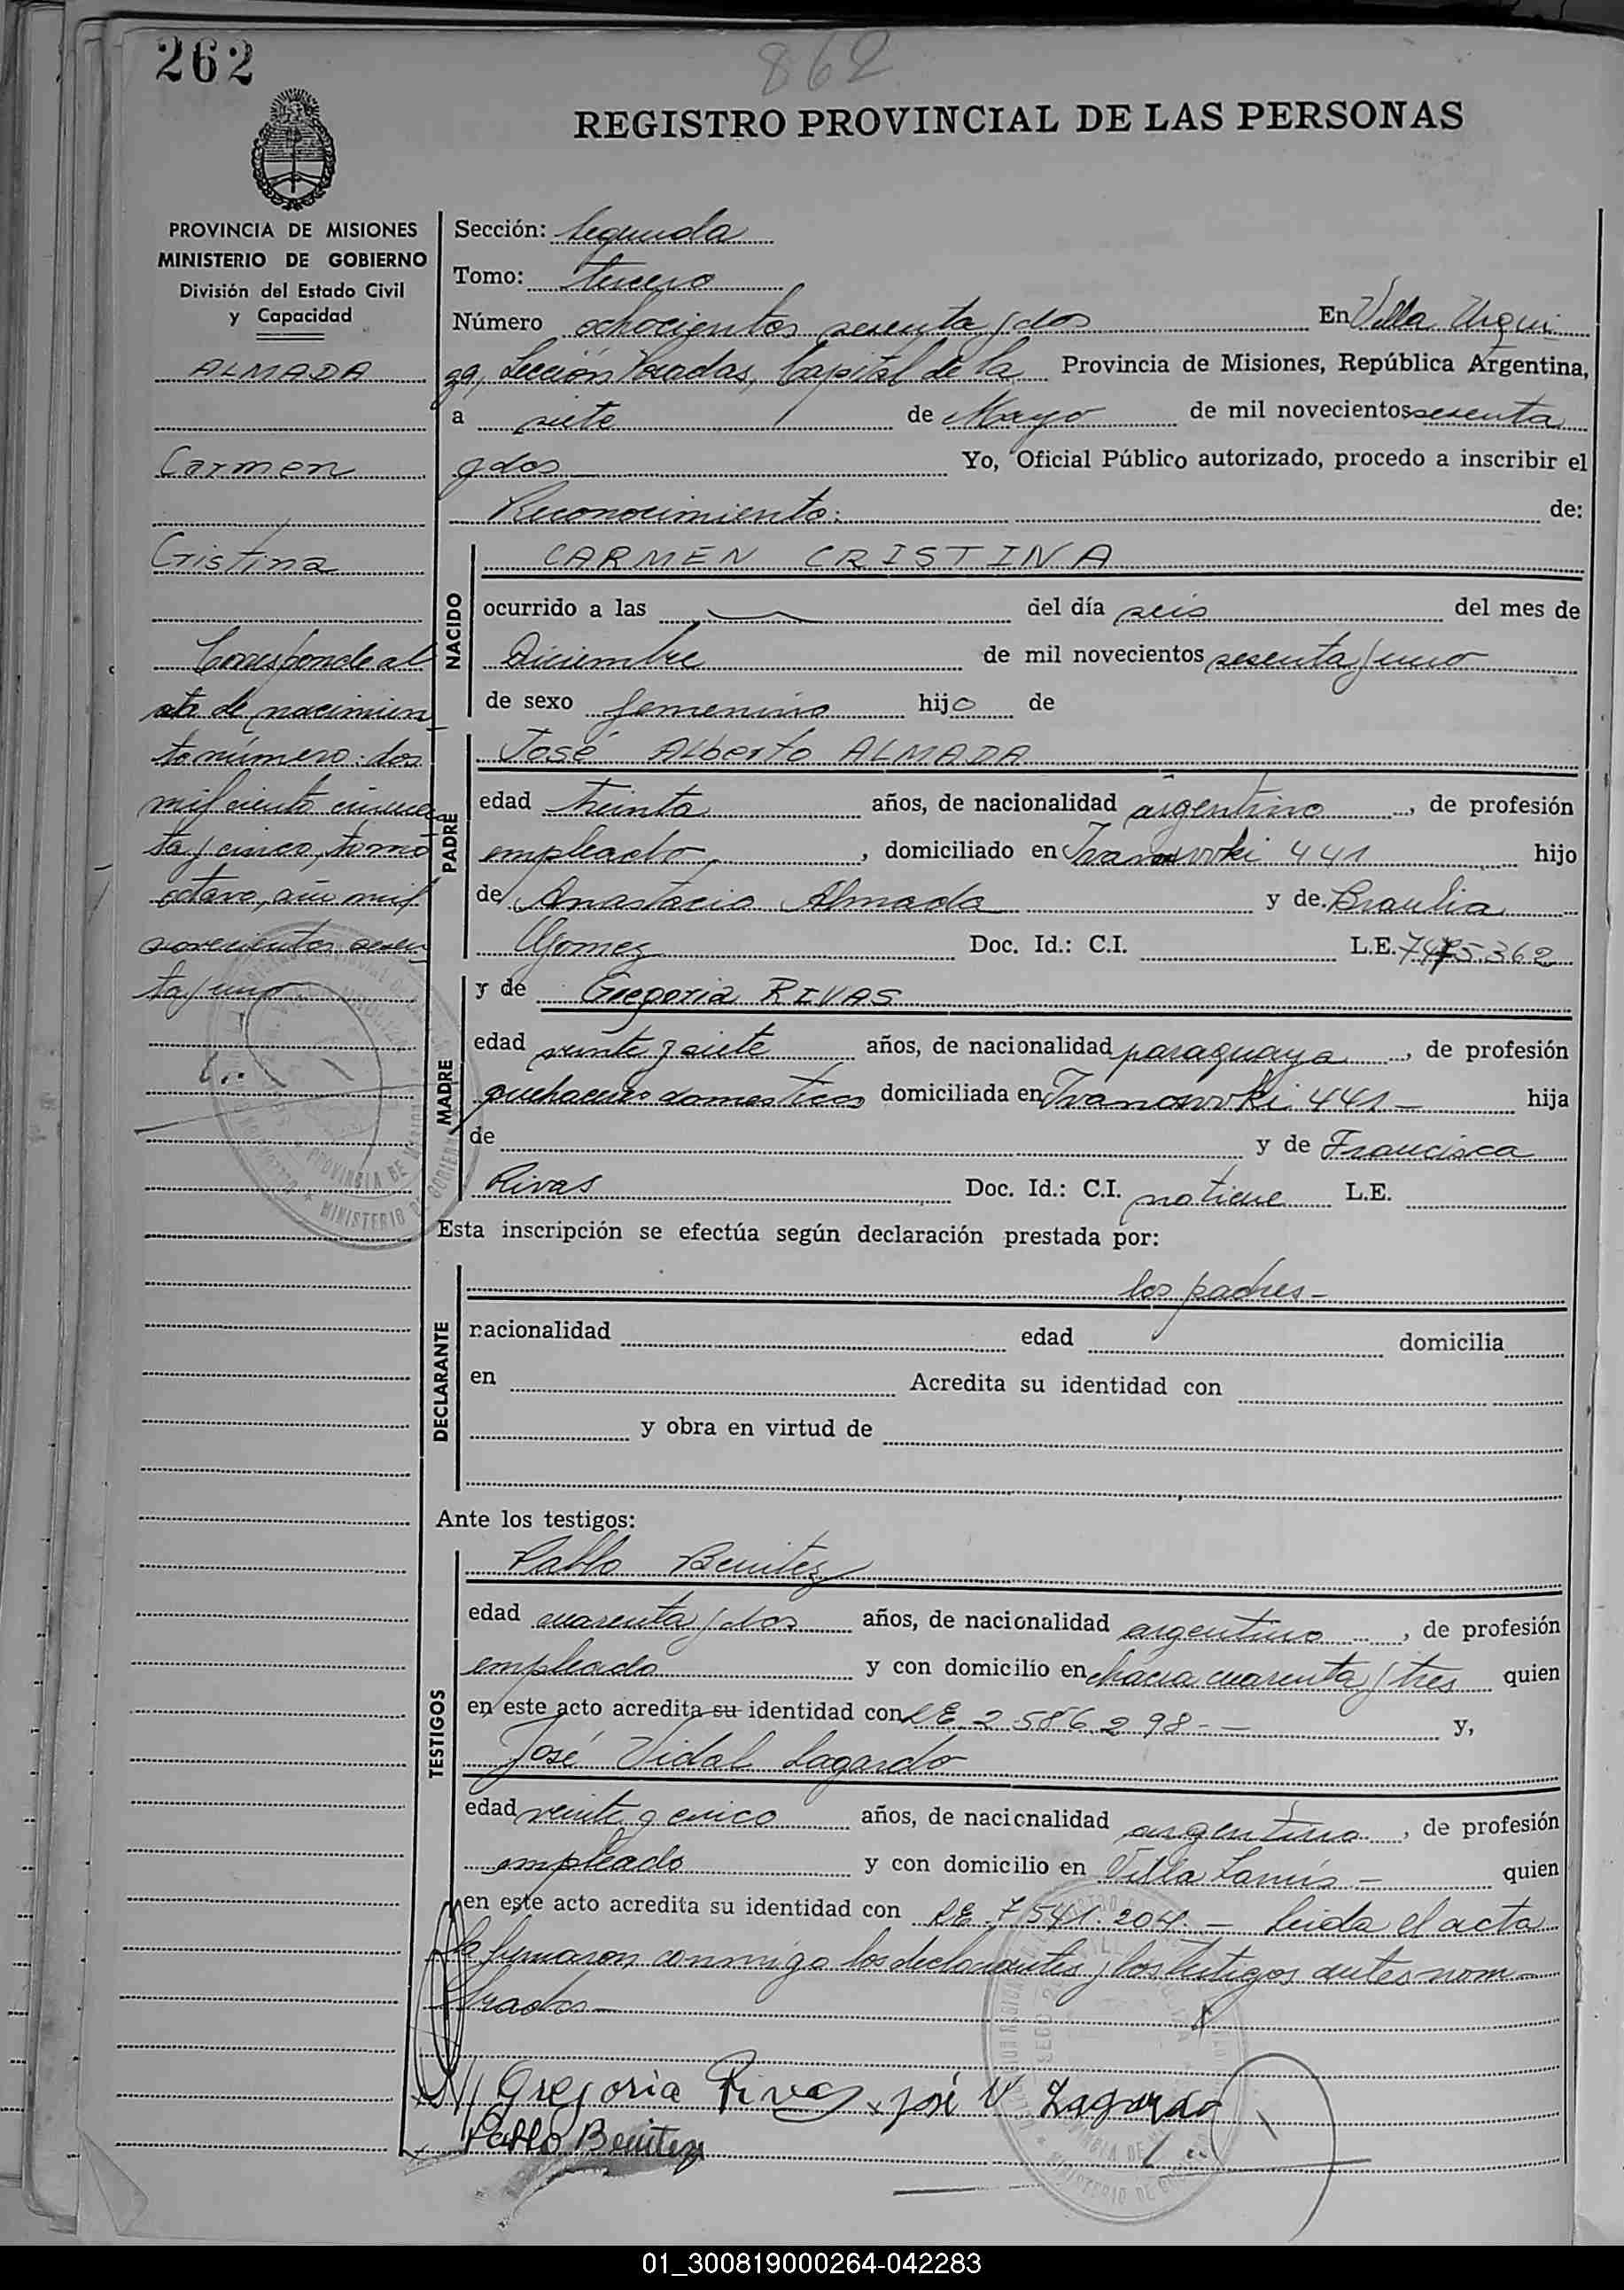 262
862
REGISTRO PROVINCIAL DE LAS PERSONAS
PROVINCIA DE MISIONES
MINISTERIO DE GOBIERNO
División del Estado Civil
y Capacidad
ALMADA
Carmen
Cristina
Corresponde al
acta de nacimien
to número: dos
mil ciento cincuen
ta y cinco, tomo
octavo, año mil
novecientos sesen
ta y uno
Sección: Segunda
Tomo: tercero
Número ochocientos sesenta y dos En Villa Urqui
za, Sección Posadas, Capital de la Provincia de Misiones, República Argentina,
a siete de Mayo de mil novecientos sesenta
y dos Yo, Oficial Público autorizado, procedo a inscribir el
Reconocimiento: de:
NACIDO
CARMEN CRISTINA
ocurrido a las del día seis del mes de
Diciembre de mil novecientos sesenta y uno
de sexo femenino hijo de
PADRE
José Alberto ALMADA
edad treinta años, de nacionalidad argentino, de profesión
empleado, domiciliado en 441 hijo
de Anastacio Almada y de Braulia
Gomez Doc. Id.: C.I. L.E.
MADRE
y de Gregoria RIVAS
edad veinte y siete años, de nacionalidad paraguaya, de profesión
quehaceres domesticos domiciliada en 441 - hija
de y de Francisca
Rivas Doc. Id.: C.I. no tiene L.E.
Esta inscripción se efectúa según declaración prestada por:
DECLARANTE
los padres -
nacionalidad edad domicilia
en Acredita su identidad con
y obra en virtud de
Ante los testigos:
TESTIGOS
Pablo Benitez
edad cuarenta y dos años, de nacionalidad argentino, de profesión
empleado y con domicilio en chacra cuarenta y tres quien
en este acto acredita su identidad con LE 2586298 - - y,
José Vidal Lagardo
edad veinte y cinco años, de nacionalidad argentino, de profesión
empleado y con domicilio en Villa Lanús - quien
en este acto acredita su identidad con LE 7541.204. - Leida el acta
la firmaron conmigo los declarantes y los testigos antes nom-
brados
Gregoria Rivas x José V Lagardo
Pablo Benitez
01_300819000264-042283